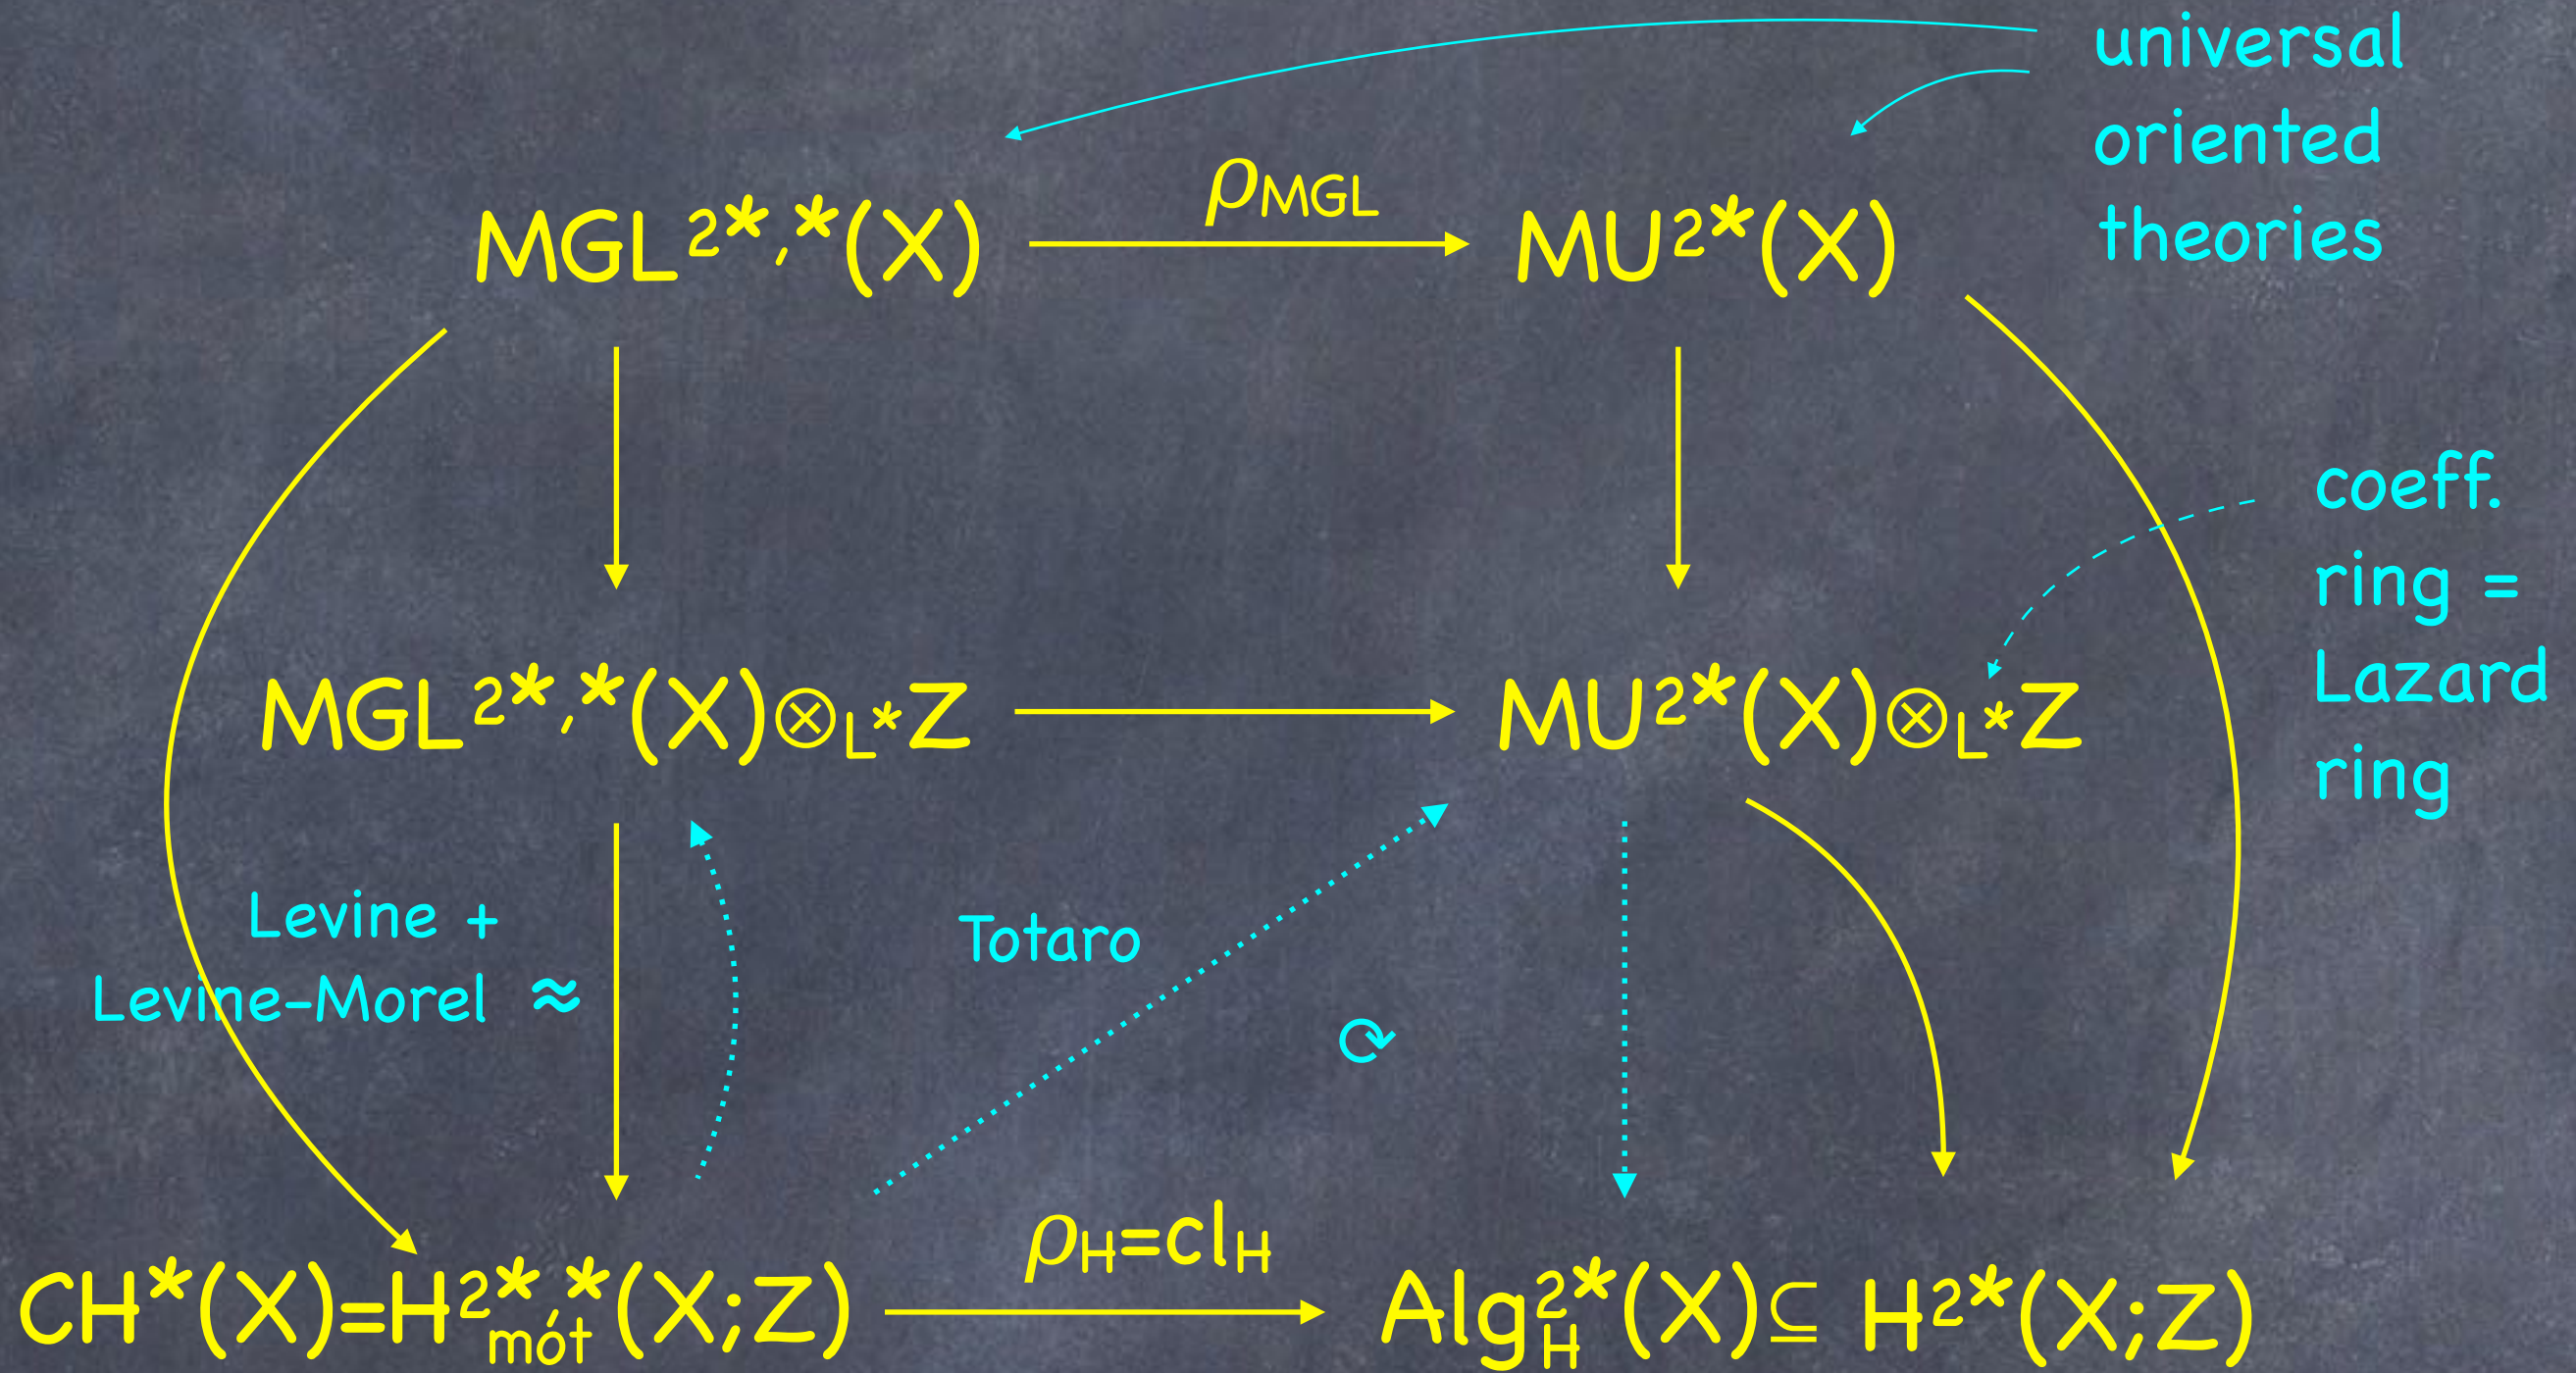 universal
oriented
theories
ρMGL
MGL²*,*(X)
MU²*(X)
coeff.
ring =
Lazard
ring
MGL²*,*(X)⊗L*Z
MU²*(X)⊗L*Z
Levine +
Levine-Morel ≈
Totaro
⟳
ρH=clH
CH*(X)=H²*,*mot(X;Z)
Alg²*H(X)⊆ H²*(X;Z)